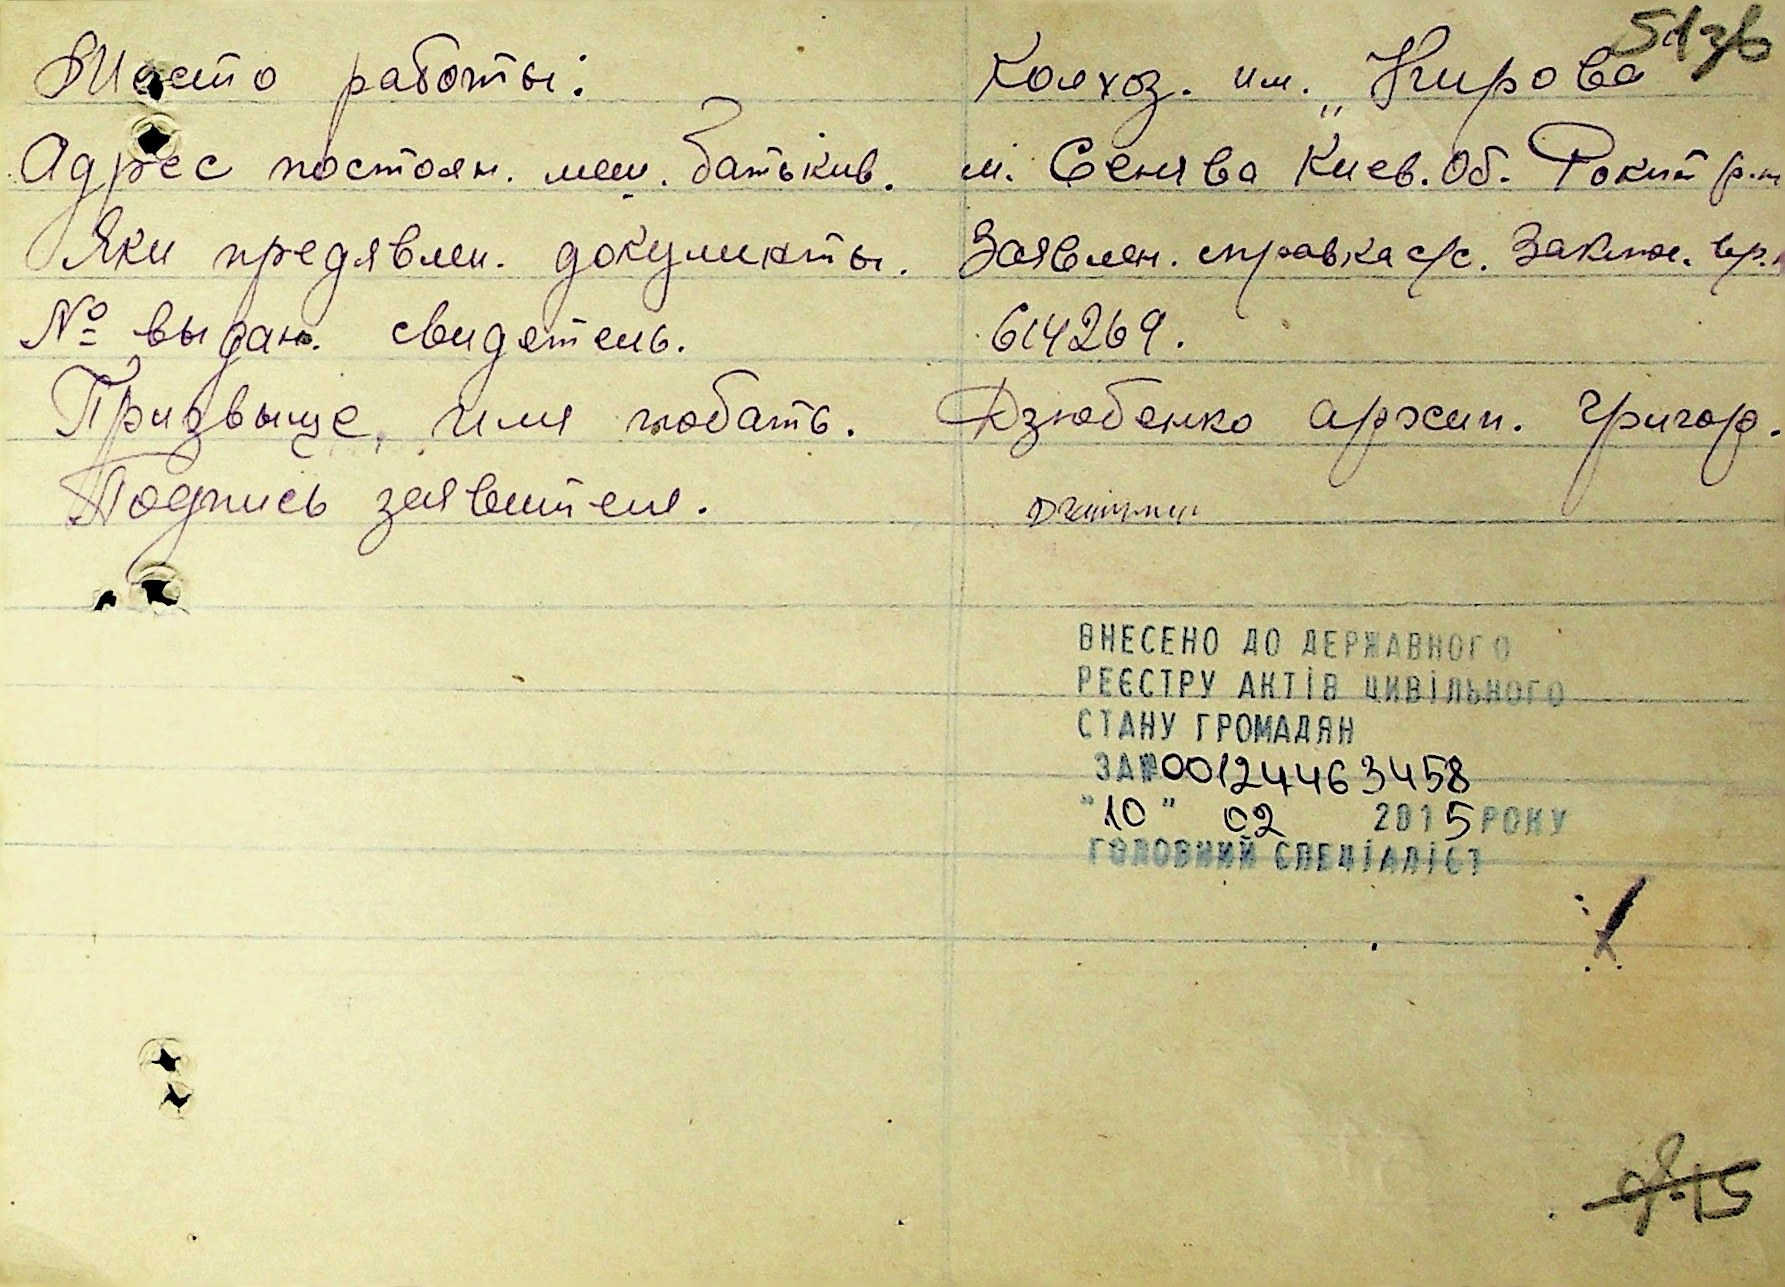 51зв
Место работы: Колхоз. им. „Кирова
Адрес постоян. меш. батькив. м. Сенява Киев. Об. Рокит р-н
Яки предявлен. документы. Заявлен. справка с/с. Заключ. вр.
№ выдан. свидетель. 614269.
Призвыще, имя побать. Дзюбенко Архип. Григор.
Подпись заявителя.
ВНЕСЕНО ДО ДЕРЖАВНОГО
РЕЄСТРУ АКТІВ ЦИВІЛЬНОГО
СТАНУ ГРОМАДЯН
ЗА№00124463458
"10" 02 2015 РОКУ
ГОЛОВНИЙ СПЕЦІАЛІСТ